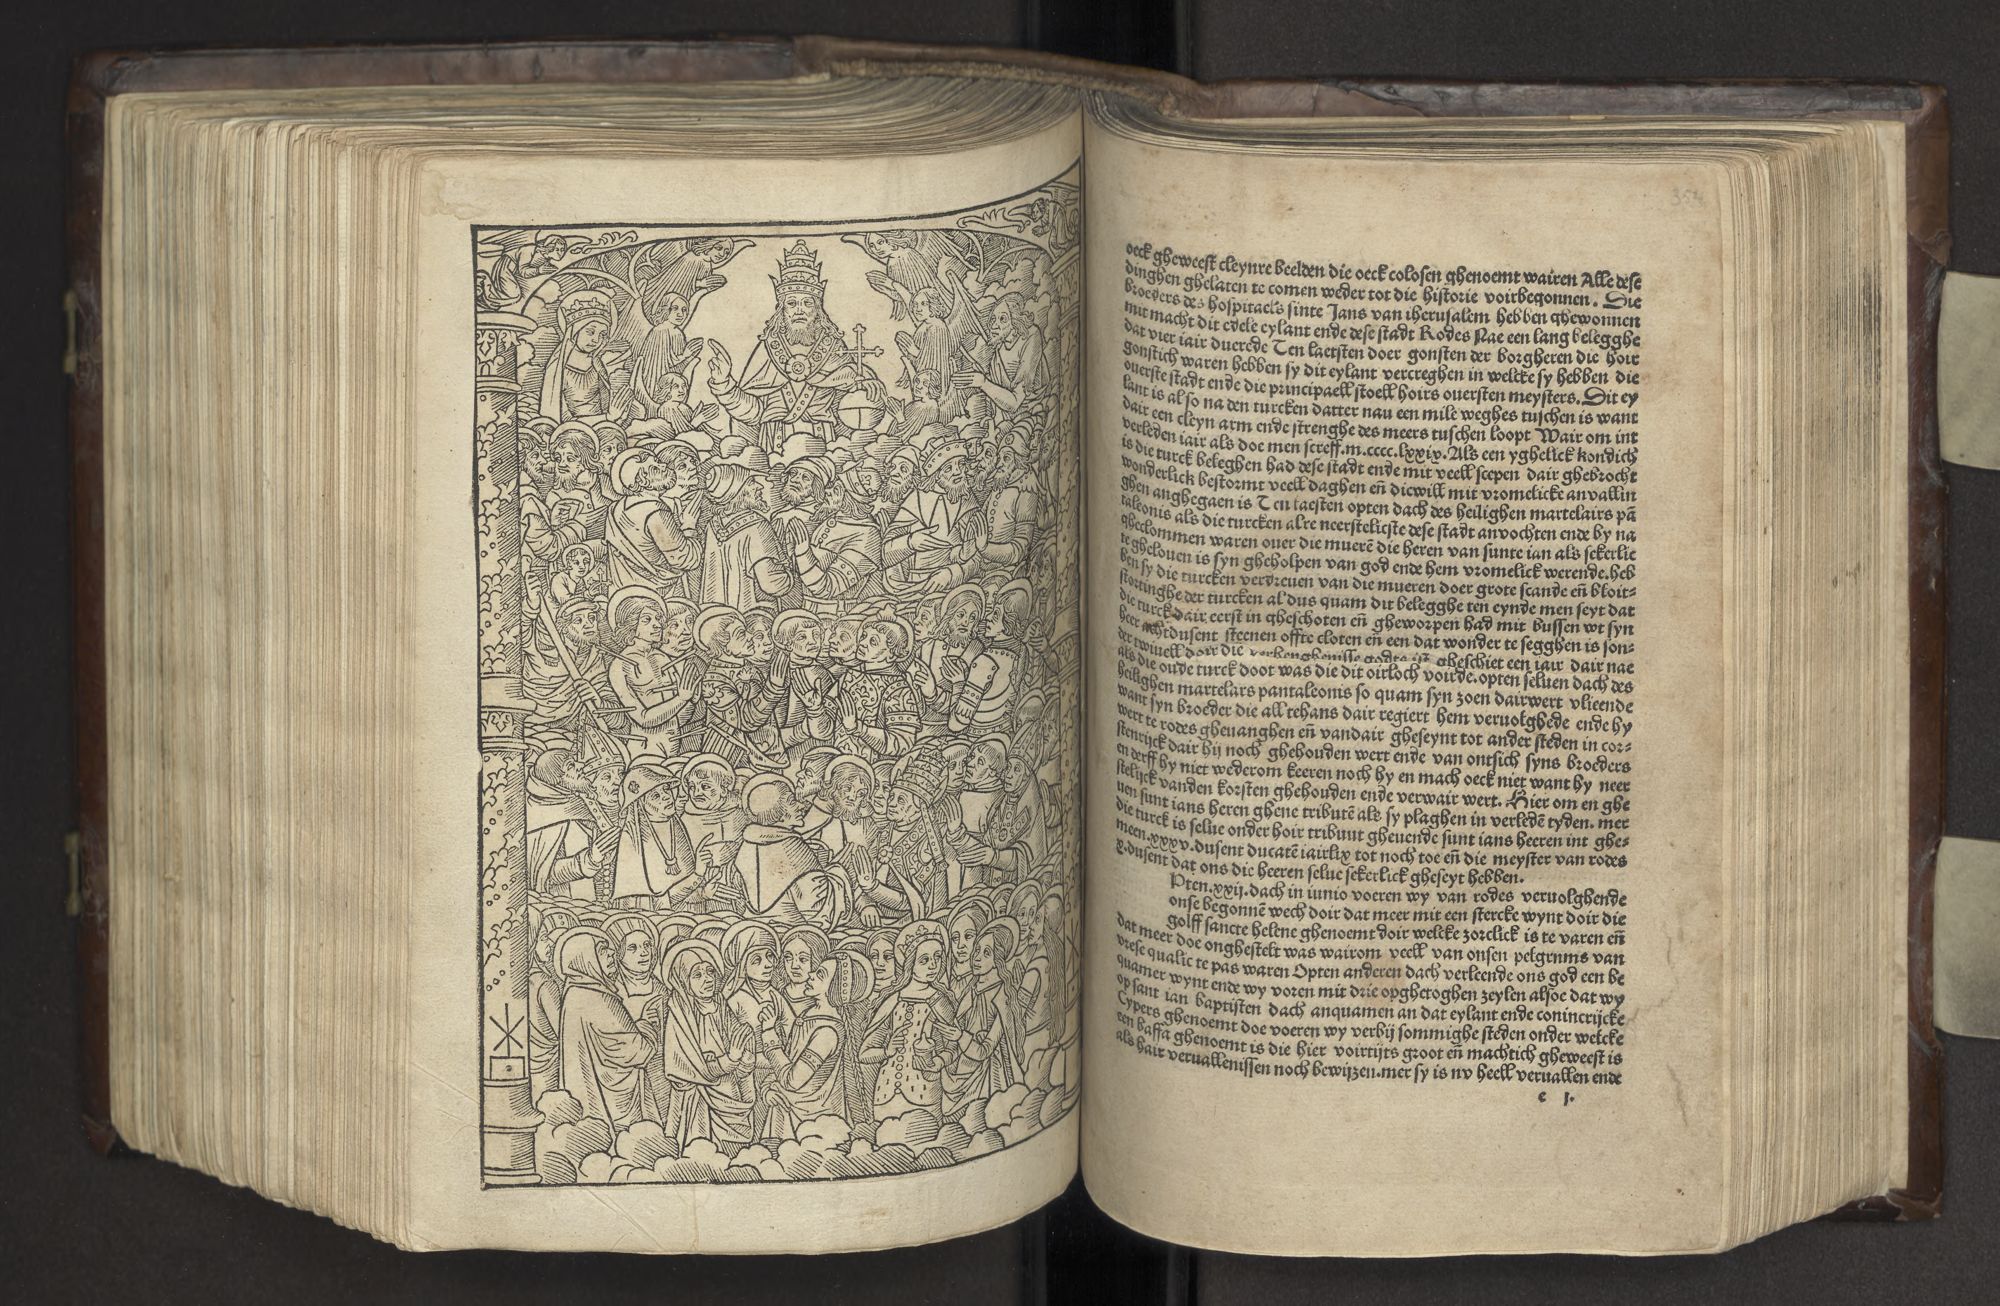 354
oeck gheweest cleynre beelden die oeck colosen ghenoemt wairen Alle dese
dinghen ghelaten te comen weder tot die historie voirbegonnen. Die
broeders des hospitaels sinte Jans van iherusalem hebben ghewonnen
mit macht dit edele eylant ende dese stadt Rodes Nae een lang belegghe
dat vier iair duerede Ten laetsten doer gonsten der borgheren die hoir
gonstich waren hebben sy dit eylant vercreghen in welcke sy hebben die
ouerste stadt ende die principaell stoell hoirs ouersten meysters. Dit ey
lant is also na den turcken datter nau een mile weghes tuschen is want
dair een cleyn arm ende strenghe des meers tuschen loopt Wair om int
verleden iair als doe men screff.m.cccc.lxxix. Als een yghelick kondich
is die turck beleghen had dese stadt ende mit veell scepen dair ghebrocht
wonderlick bestormt veell daghen eñ diewill mit vromelicke anvallin
ghen anghegaen is Ten laesten opten dach des heilighen martelairs pā
taleonis als die turcken alre neerstelicste dese stadt anvochten ende by na
gheclommen waren ouer die muerē die heren van sunte ian als sekerlic
te ghelouen is syn gheholpen van god ende hem vromelick werende.heb
ben sy die turcken verdreuen van die mueren doer grote scande eñ bloit-
stortinghe der turcken aldus quam dit belegghe ten eynde men seyt dat
die turck dair eerst in gheschoten eñ gheworpen had mit bussen wt syn
heer achtdusent steenen offte cloten eñ een dat wonder te segghen is son-
der twiuell doir die verhenghenisse gods ist gheschiet een iair dair nae
als die oude turck doot was die dit oirloch voirde.opten seluen dach des
heilighen martelars pantaleonis so quam syn zoen dairwert vlieende
want syn broeder die all tehans dair regiert hem veruolghede ende hy
wert te rodes gheuanghen eñ vandair gheseynt tot ander steden in cor-
stenrijck dair hij noch ghehouden wert ende van ontsich syns broeders
en derff hy niet wederom keeren noch hy en mach oeck niet want hy neer
stelijck vanden korsten ghehouden ende verwair wert. Hier om en ghe
uen sunt ians heren ghene tributē als sy plaghen in verledē tyden. mer
die turck is selue onder hoir tribuut gheuende sunt ians heeren int ghe-
meen.xxxv.dusent ducatē iairlix tot noch toe eñ die meyster van rodes
x.dusent dat ons die heeren selue sekerlick gheseyt hebben.
Pten.xxij.dach in iunio voeren wy van rodes veruolghende
onse begonnē wech doir dat meer mit een stercke wynt doir die
golff sancte helene ghenoemt doir welcke zorclick is te varen eñ
dat meer doe onghestelt was wairom veell van onsen pelgrums van
vrese qualic te pas waren Opten anderen dach verleende ons god een be
quamer wynt ende wy voren mit drie opghetoghen zeylen alsoe dat wy
op sant ian baptisten dach anquamen an dat eylant ende conincrijcke
Cypers ghenoemt doe voeren wy verbij sommighe steden onder welcke
een baffa ghenoemt is die hier voirtijts groot eñ machtich gheweest is
als hair veruallenissen noch bewijzen.mer sy is nv heell veruallen ende
e j.